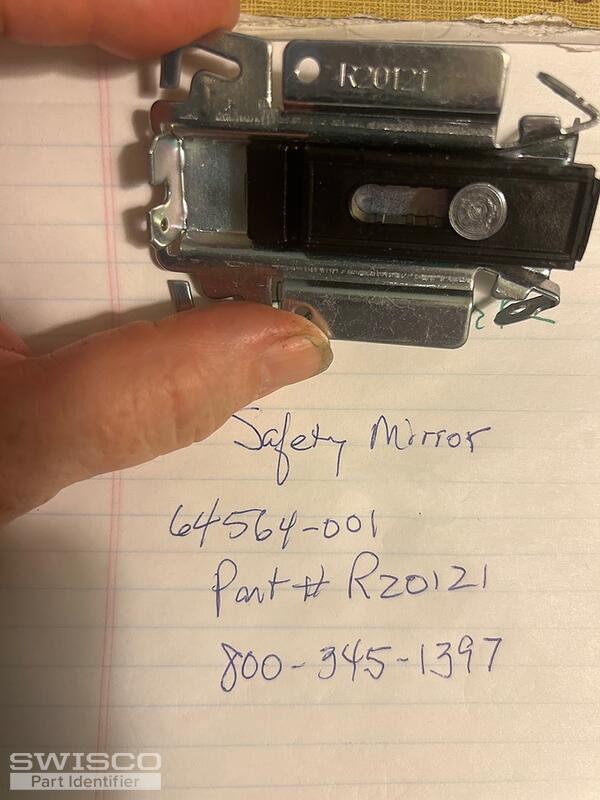 R20121
Safety Mirror
64564-001
Part # R20121
800-345-1397
SWISCO
Part Identifier